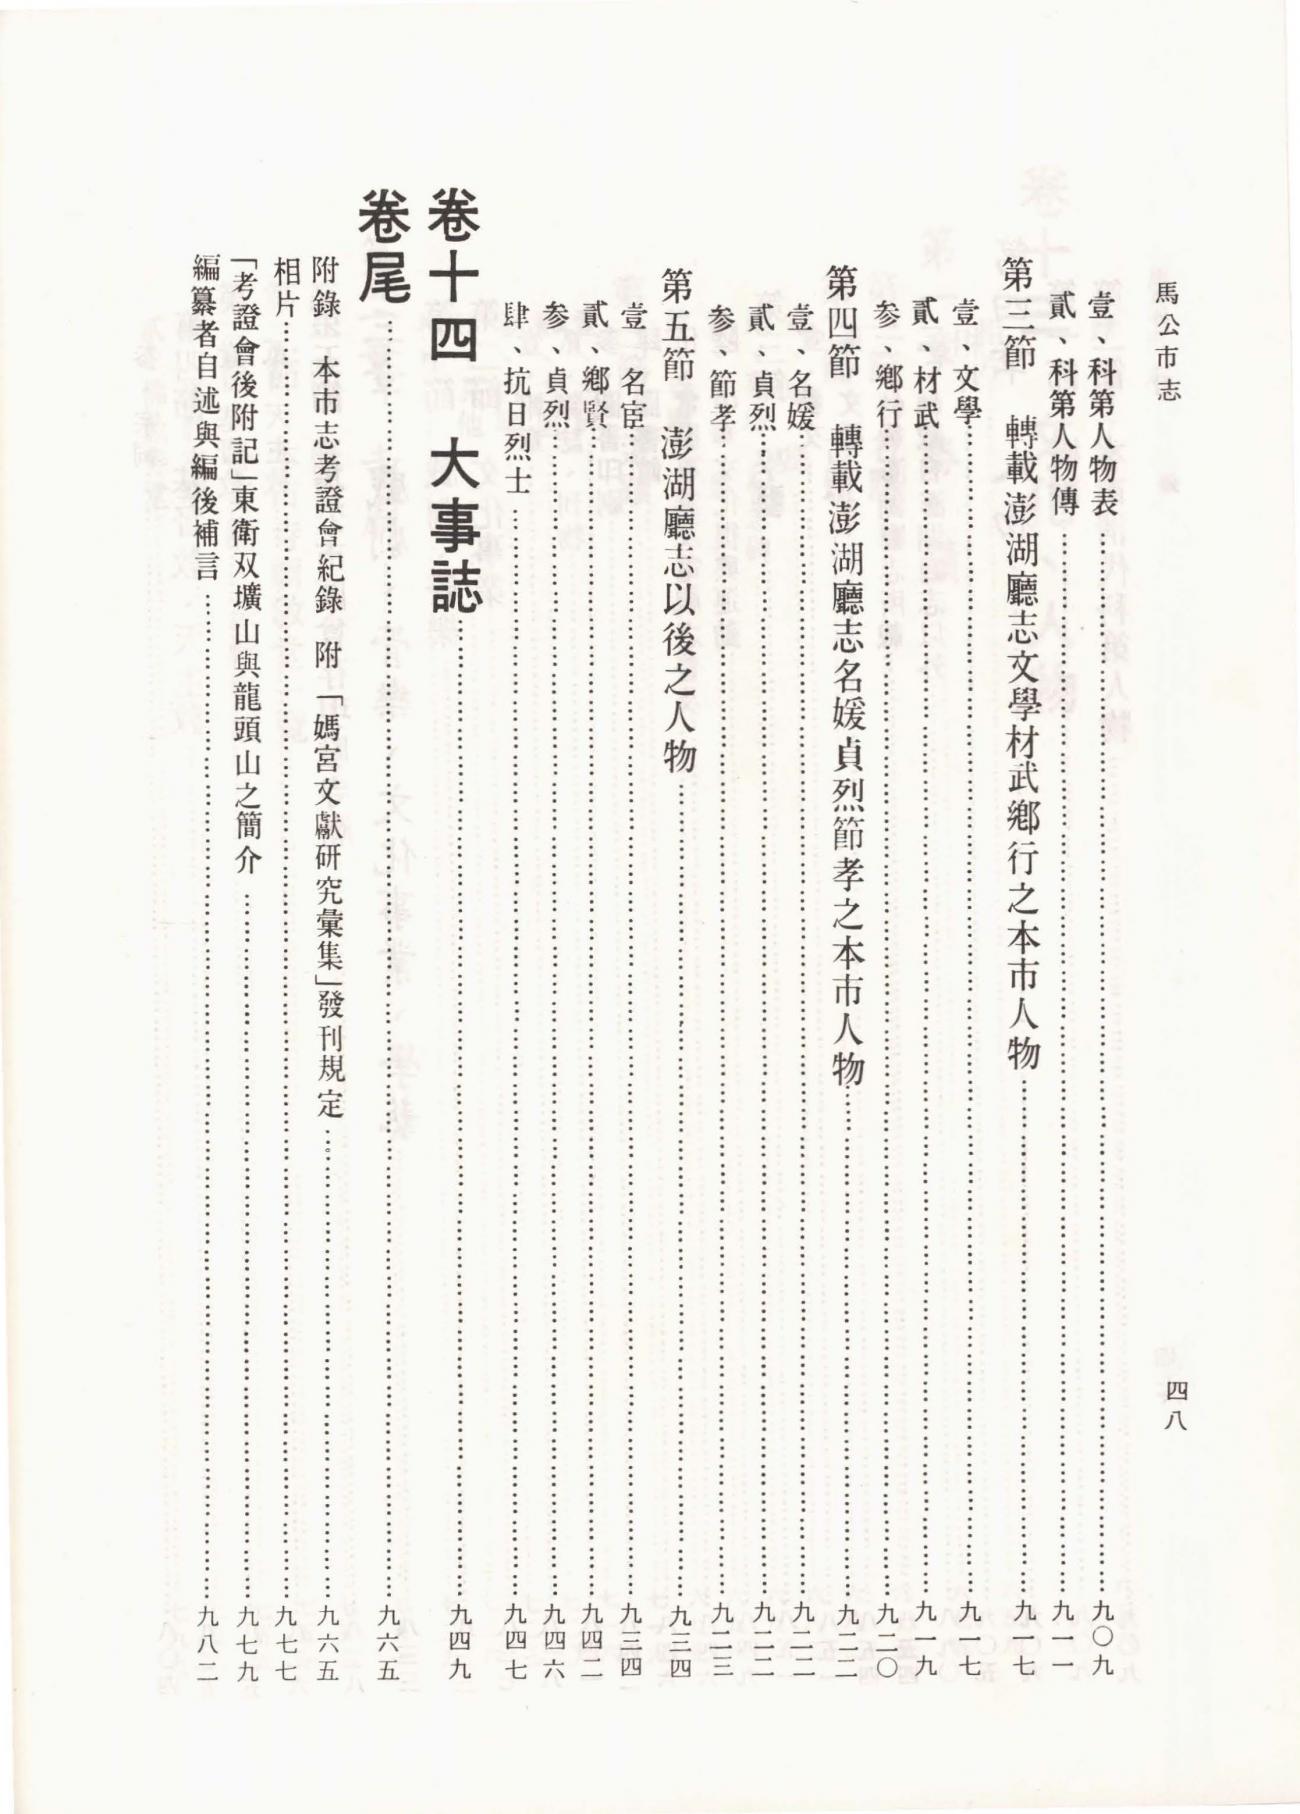 馬公市志
四八
壹、科第人物表……九〇九
貳、科第人物傳……九一一
第三節 轉載澎湖廳志文學材武鄉行之本市人物……九一七
壹、文學……九一七
貳、材武……九一九
参、鄉行……九二〇
第四節 轉載澎湖廳志名媛貞烈節孝之本市人物……九二二
壹、名媛……九二二
貳、貞烈……九二二
参、節孝……九二三
第五節 澎湖廳志以後之人物……九三四
壹、名宦……九三四
貳、鄉賢……九四二
参、貞烈……九四六
肆、抗日烈士……九四七
卷十四 大事誌……九四九
卷尾……九六五
附錄 本市志考證會紀錄 附「媽宮文獻研究彙集」發刊規定……九六五
相片……九七七
「考證會後附記」東衛双壙山與龍頭山之簡介……九七九
編纂者自述與編後補言……九八二